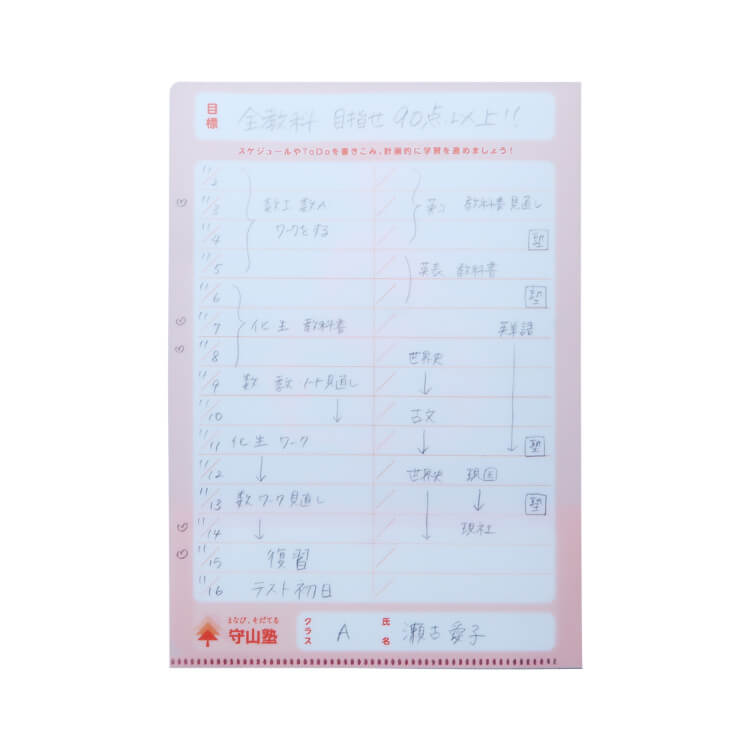 目標 全教科 目指せ 90点以上!!
スケジュールやToDoを書きこみ、計画的に学習を進めましょう!
11/2
11/3 数I 数A 英コ 教科書見直し
11/4 ワークをする 塾
11/5 英表 教科書
11/6 塾
11/7 化 生 教科書 英単語
11/8 世界史
11/9 数 数 ノート見直し ↓
11/10 ↓ 古文
11/11 化 生 ワーク ↓ 塾
11/12 ↓ 世界史 現国
11/13 数 ワーク見直し ↓ 塾
11/14 ↓ 現社
11/15 復習
11/16 テスト初日
まなび、そだてる
守山塾 クラス A 氏名 瀬古 愛子